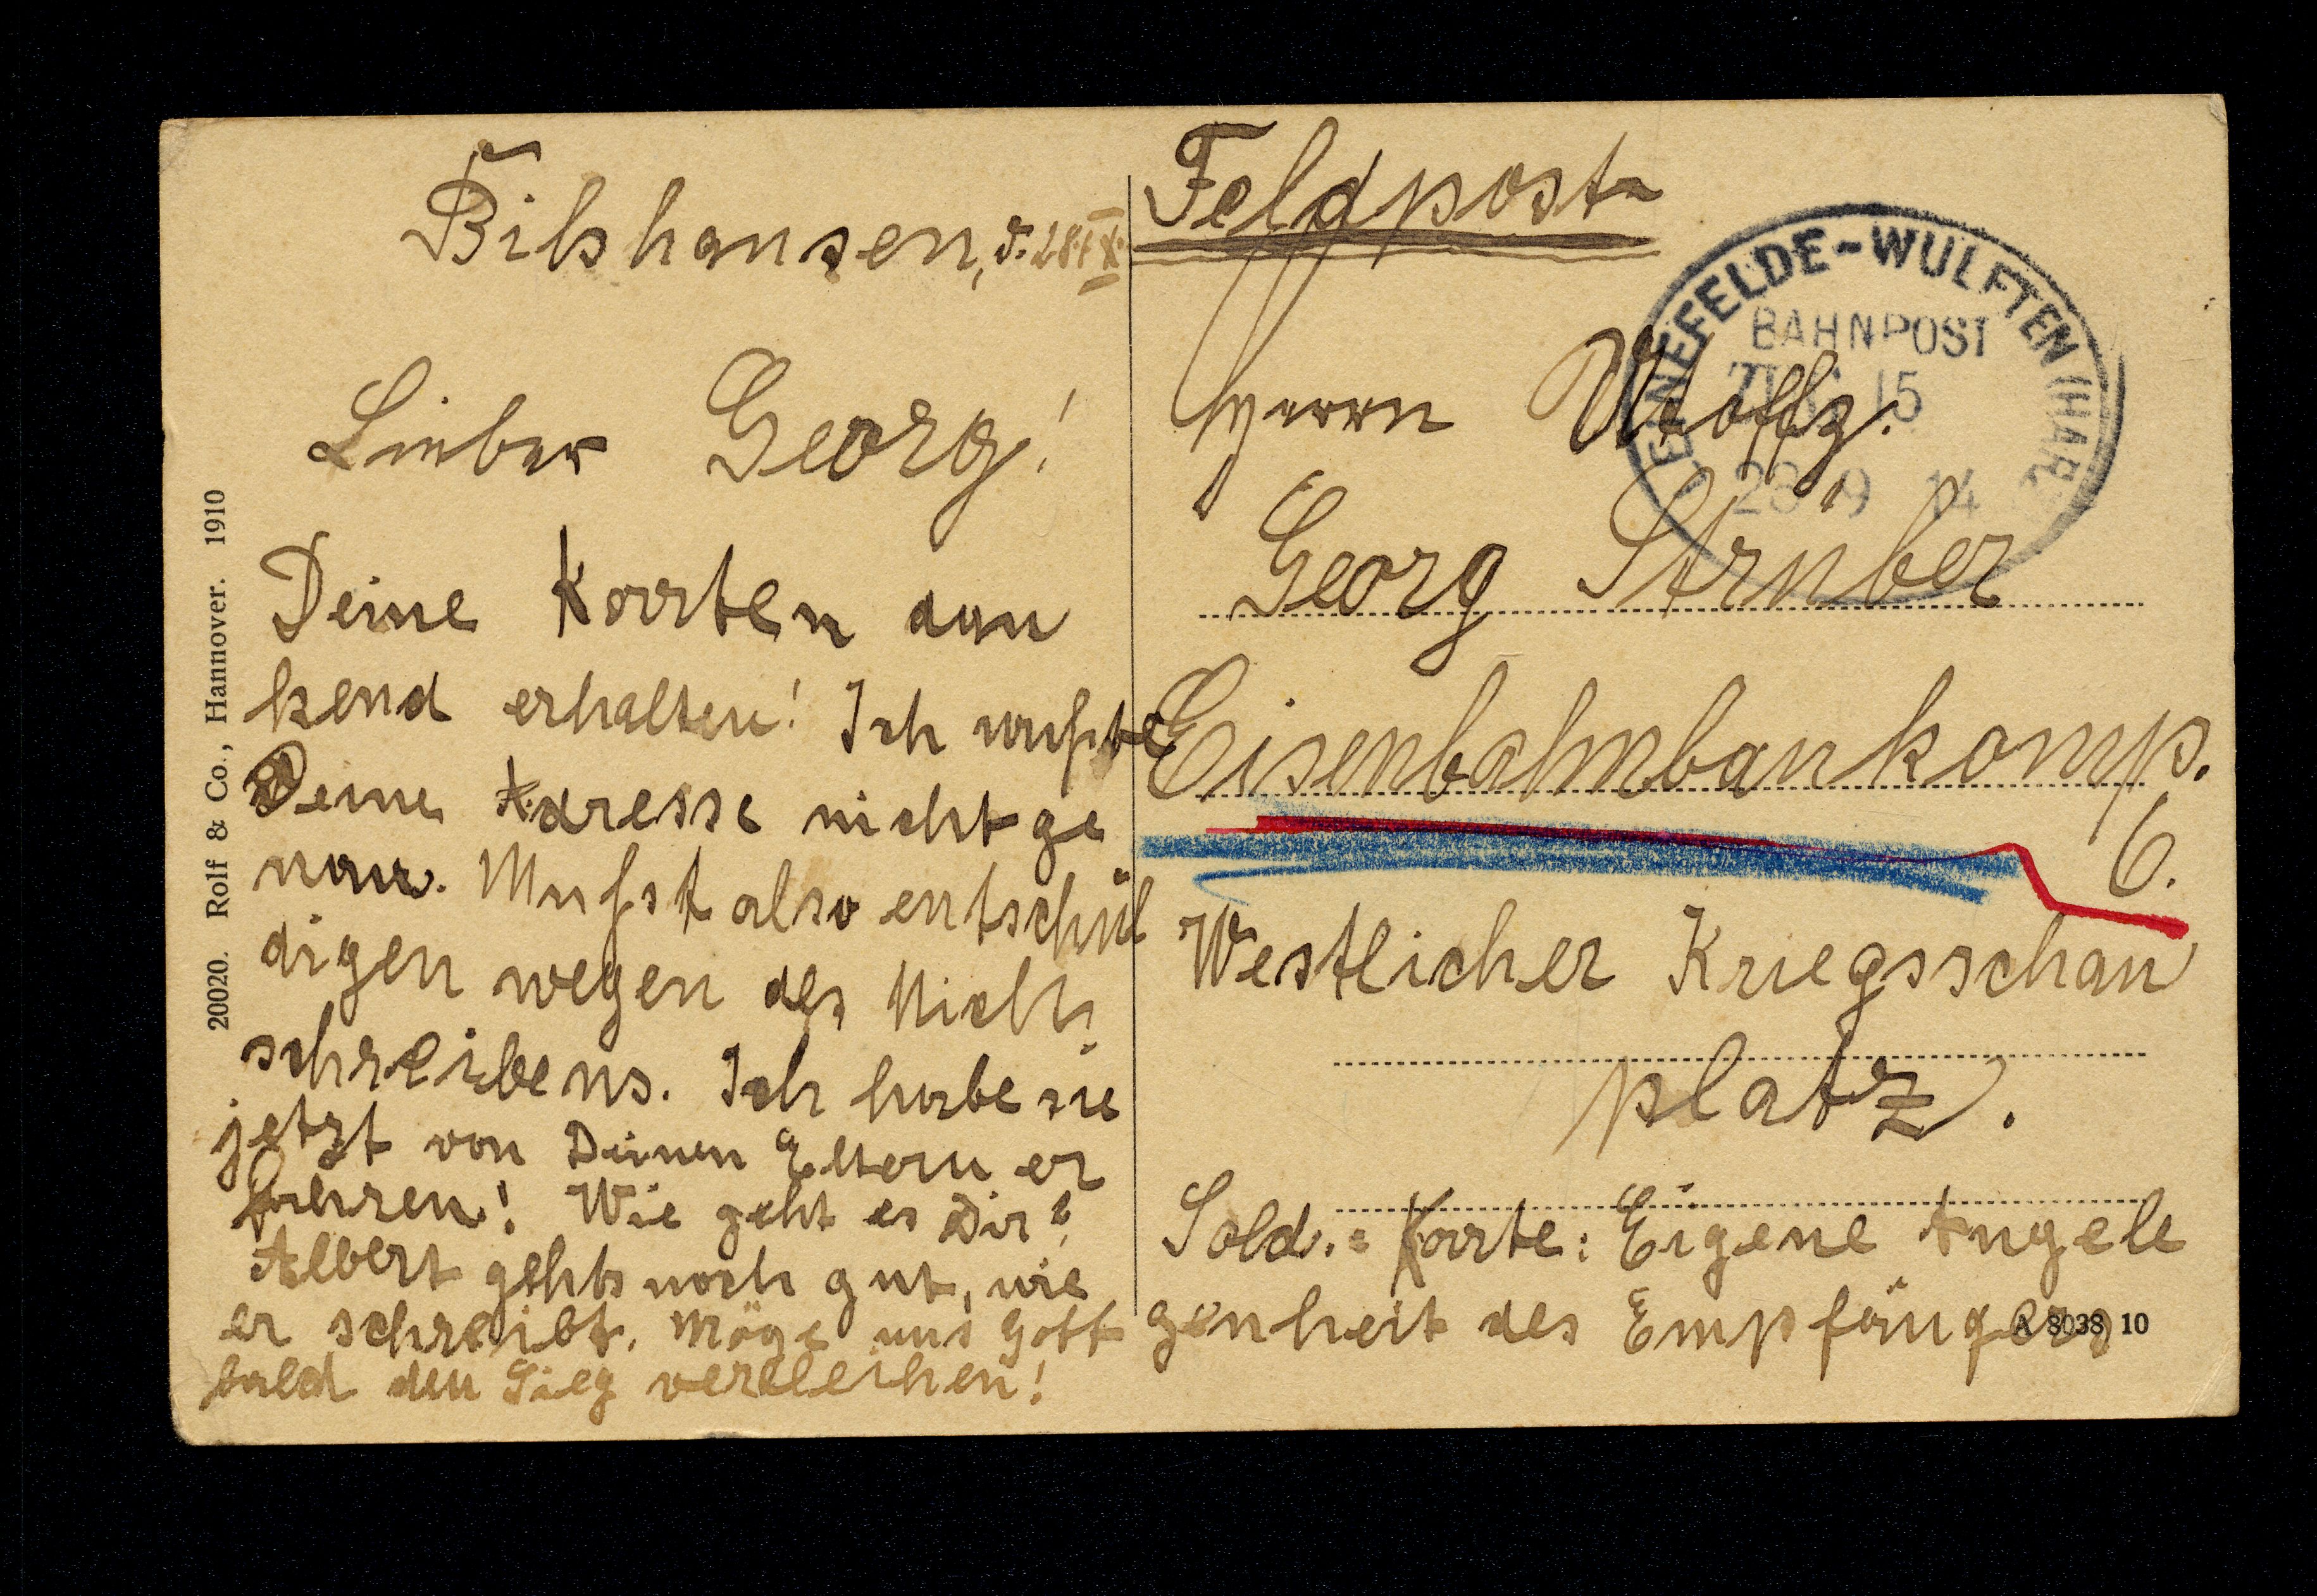 Bilshausen, d. 28.IX.
Lieber Georg!
Deine Karten dan
kend erhalten! Ich wußte
Deine Adresse nicht ge
nau. Mußt also entschul
digen wegen des Nicht
schreibens. Ich habe sie
jetzt von Deinen Eltern er
fahren! Wie geht es Dir?
Albert gehts noch gut, wie
er schreibt. Möge uns Gott
bald den Sieg verleihen!
20020. Rolf & Co., Hannover. 1910
Feldpost
LEINEFELDE-WULFTEN (HARZ)
BAHNPOST
ZUG 15
28 9 14
Herrn Utoffz.
Georg Strüber
Eisenbahnbaukomp.
6.
Westlicher Kriegsschau
platz.
Sold.=Karte: Eigene Angele
genheit des Empfängers
A 8038 10